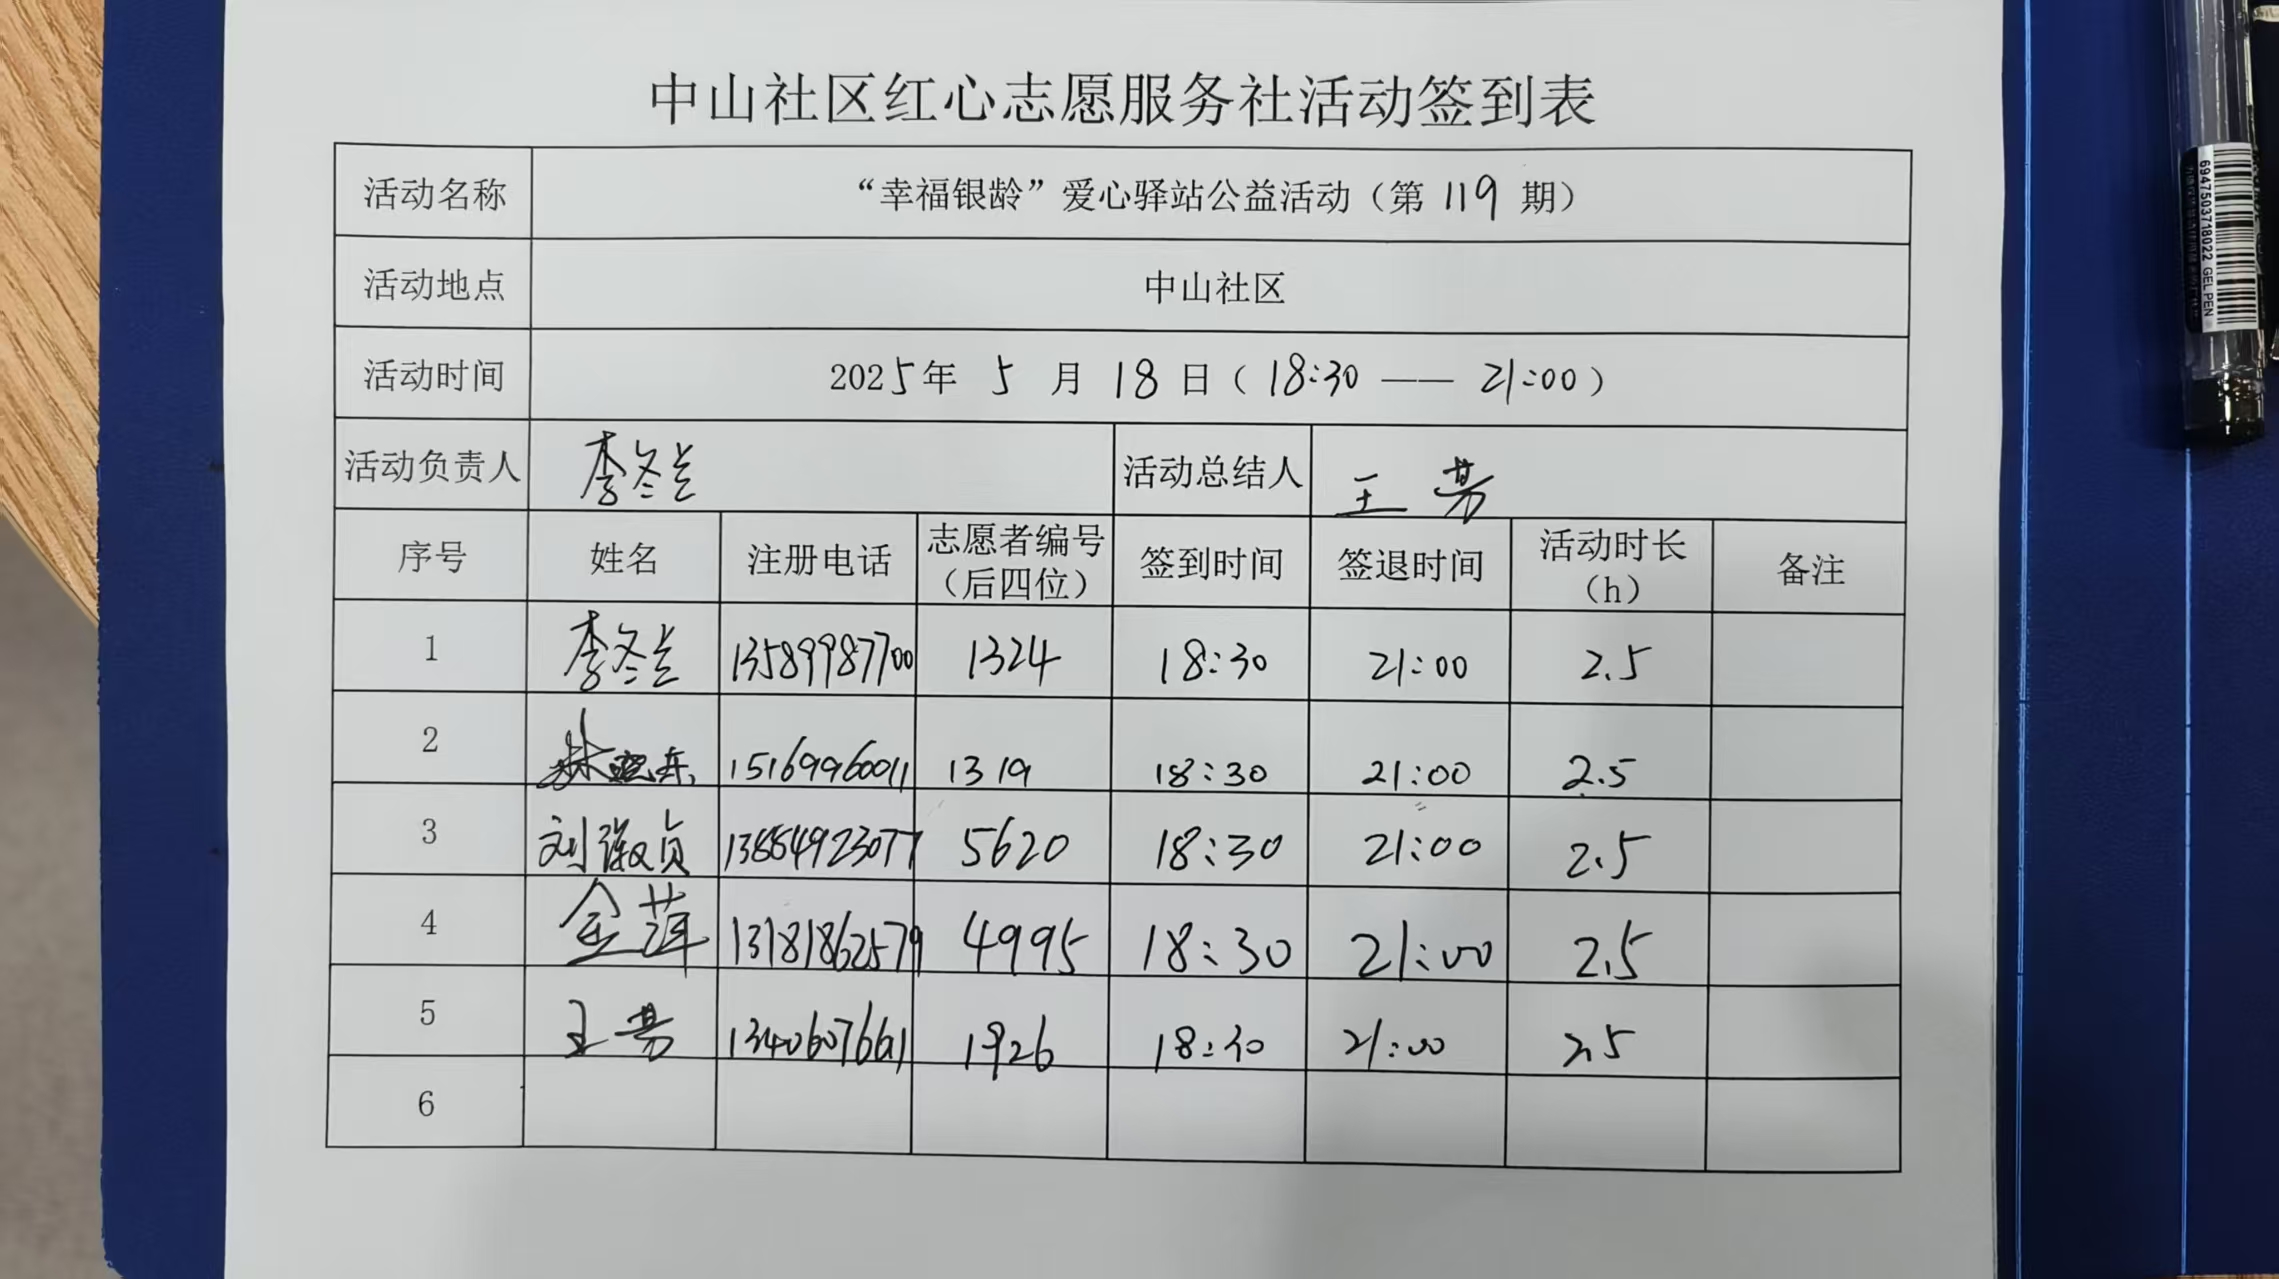 中山社区红心志愿服务社活动签到表
活动名称 “幸福银龄”爱心驿站公益活动（第 119 期）
活动地点 中山社区
活动时间 2025年 5 月 18 日（18:30 —— 21:00）
活动负责人 李冬兰 活动总结人 王芳
序号 姓名 注册电话 志愿者编号（后四位） 签到时间 签退时间 活动时长（h） 备注
1 李冬兰 13589987700 1324 18:30 21:00 2.5
2 林晓东 15169960011 1319 18:30 21:00 2.5
3 刘淑贞 13884923077 5620 18:30 21:00 2.5
4 金萍 13181862579 4995 18:30 21:00 2.5
5 王芳 13406076661 1926 18:30 21:00 2.5
6
6947503718022 GEL PEN